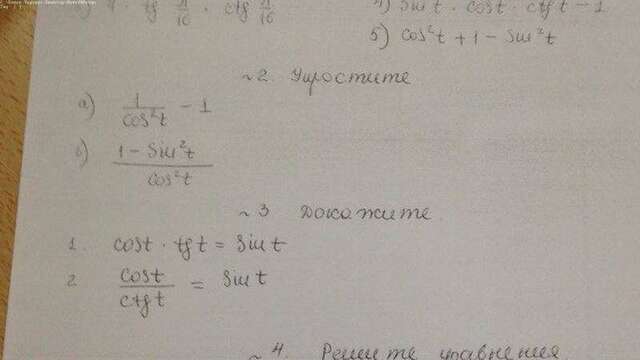 · tg π/16 · ctg π/16
4) sin t · cos t · ctg t - 1
5) cos²t + 1 - sin²t
~2. Упростите
а) 1/cos²t - 1
б) (1 - sin²t)/cos²t
~3 Докажите
1. cos t · tg t = sin t
2 cos t/ctg t = sin t
~4. Решите уравнения